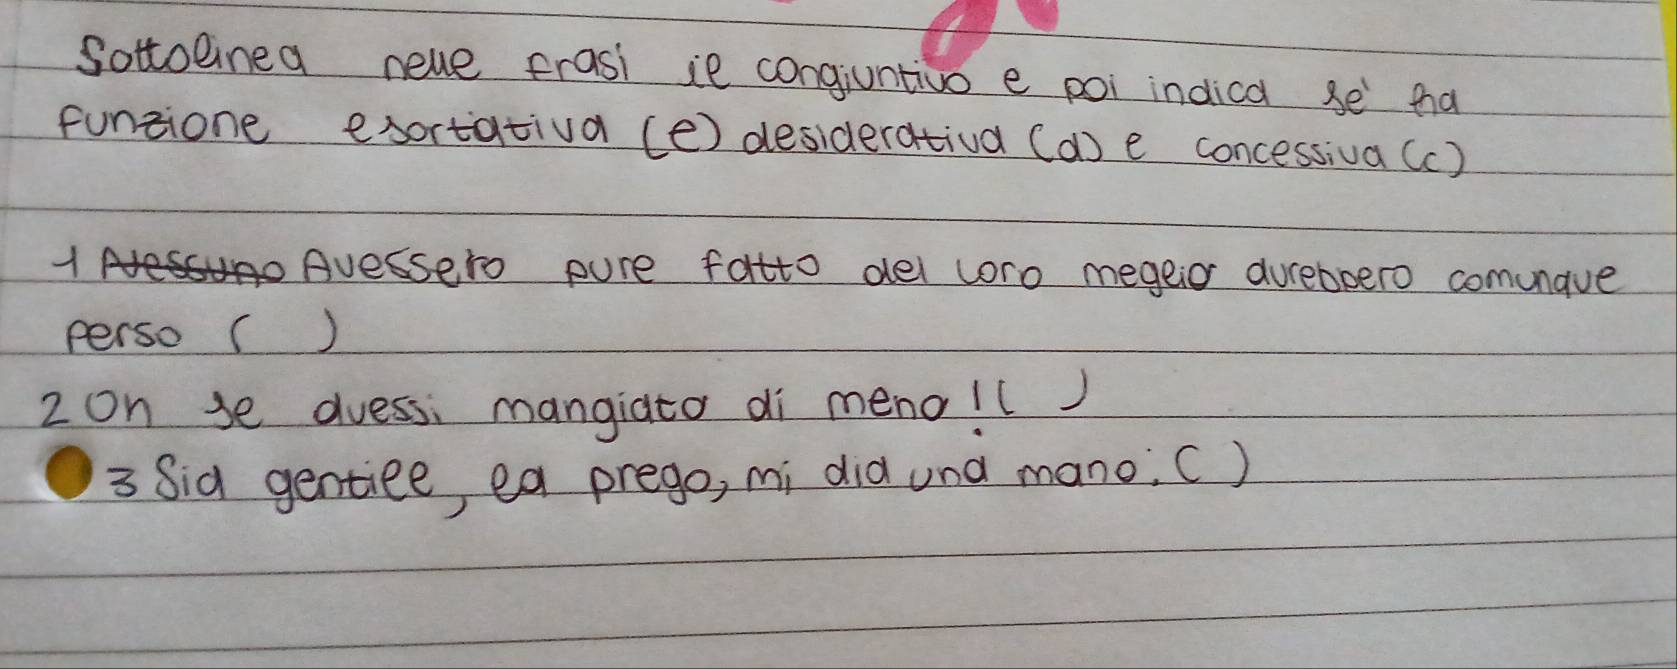 Sottolinea nelle frasi il congiuntivo e poi indica se' ha
funzione esortativa (e) desiderativa (d) e concessiva (c)
1 Avessero pure fatto del loro meglio avrebbero comunque
perso ( )
2 Oh se avessi mangiato di meno! ( )
3 Sia gentile, la prego, mi dia una mano. ( )